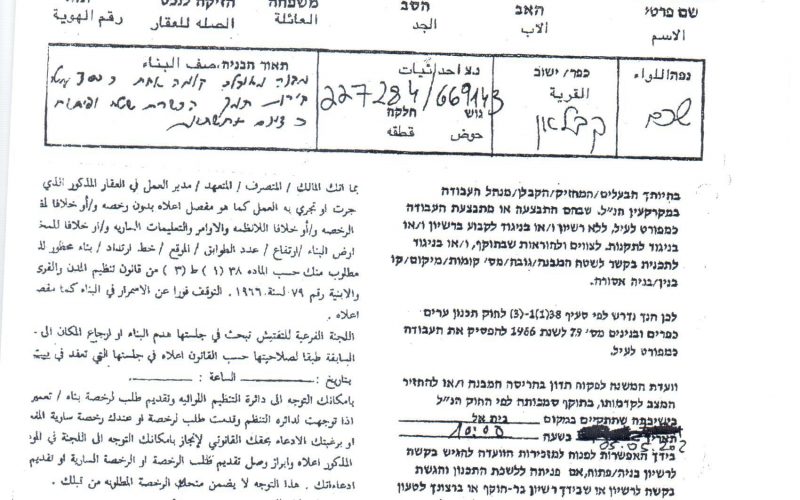 שם פרטי
האב
הסב
משפחה
הזיקה לנכס
الاسم
الاب
الجد
العائلة
الصله للعقار
رقم الهوية
נפה اللواء
שכם
כפר/ישוב
القرية
קבלאן
נ.צ احداثيات
227284/669143
גוש
חלקה
حوض
قطعه
תאור הבניה وصف البناء
בהיותך הבעלים/המחזיק/הקבלן/מנהל העבודה
במקרקעין הנ"ל, שבהם התבצעה או מתבצעת העבודה
כמפורט לעיל, ללא רשיון או בניגוד לקבוע ברשיון ו/או
בניגוד לתקנות, לצווים ולהוראות שבתוקף, ו/או בניגוד
לתכנית בקשר לשטח המבנה/גובה/מס' קומות/מיקום/קו
בנין/בניה אסורה.
לכן הנך נדרש לפי סעיף 38(1)(ו-3) לחוק תכנון ערים
כפרים ובנינים מס' 79 לשנת 1966 להפסיק את העבודה
כמפורט לעיל.
וועדת המשנה לפקוח תדון בהריסת המבנה ו/או להחזיר
המצב לקדמותו, בתוקף סמכותה לפי החוק הנ"ל
בישיבתה שתתקיים במקום בית אל
בשעה 10:00
בידך האפשרות לפנות למזכירות הוועדה להגיש בקשה
לרשיון בניה/פתוח, אם פניתה ללשכת התכנון והגשת
בקשה לרשיון או שבידך רשיון בר-תוקף או ברצתך לטעון
بما انك المالك / المتصرف / المتعهد / مدير العمل في العقار المذكور الذي
جرت او تجري به العمل كما هو مفصل اعلاه بدون رخصه و/أو خلافا لما
الرخصه و/أو خلافا للانظمه والاوامر والتعليمات الساريه و/أو خلافا للمخ
ارض البناء /ارتفاع / عدد الطوابق / الموقع / خط ارتداد / بناء محظور لذ
مطلوب منك حسب الماده ٣٨ (١) ط (٣) من قانون تنظيم المدن والقرى
والابنية رقم ٧٩ لسنة ١٩٦٦، التوقف فورا عن الاسمرار في البناء كما مفص
اعلاه .
اللجنة الفرعية للتفتيش تبحث في جلستها هدم البناء او ارجاع المكان الى
السابقة طبقا لصلاحيتها حسب القانون اعلاه في جلستها التي تعقد في بيت
بتاريخ : الساعة :
بامكانك التوجه الى دائرة التنظيم اللوائيه وتقديم طلب لرخصة بناء / تعمير
اذا توجهت لدائره التنظم وقدمت طلب لرخصة او عندك رخصة سارية المفع
او برغبتك الادعاء بحقك القانوني لإنجاز بامكانك التوجه الى اللجنة في الموع
المذكور اعلاه وابراز وصل تقديم طلب الرخصة او الرخصة السارية او تقديم
ادعاءاتك . هذا التوجه لا يضمن منحك الرخصة المطلوبه من قبلك .